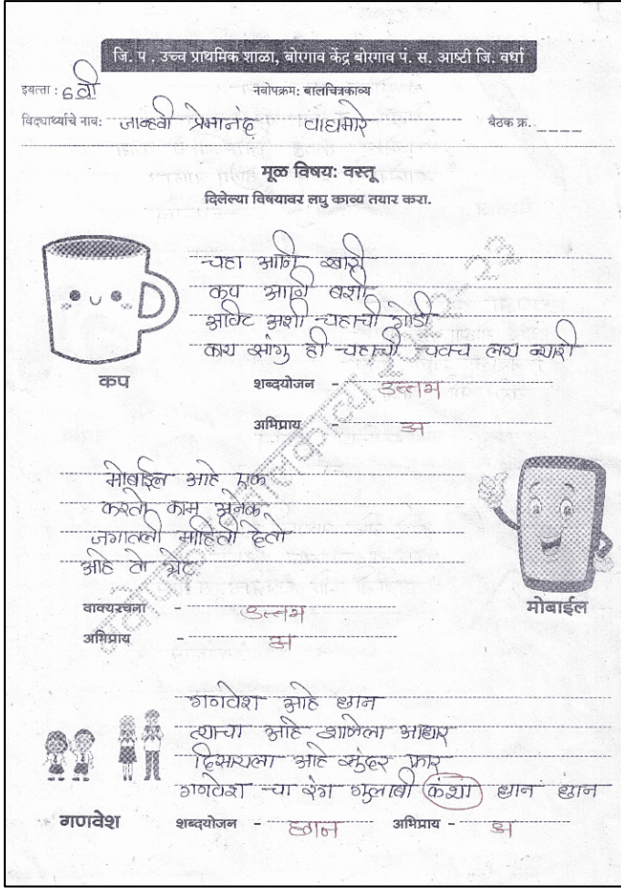 जि. प . उच्च प्राथमिक शाळा, बोरगाव केंद्र बोरगाव पं. स. आष्टी जि. वर्धा
इयत्ता : 6 वी नवोपक्रम: बालचित्रकाव्य
विद्यार्थ्याचे नाव: जान्हवी प्रेमानंद वाघमारे बैठक क्र. ____
मूळ विषय: वस्तू
दिलेल्या विषयावर लघु काव्य तयार करा.
चहा आनि खारी
कप आनि बशी
अविट अशी चहाची गोडी
काय सांगु ही चहाची चवच लय न्यारी
कप
शब्दयोजन - उत्तम
अभिप्राय - अ
मोबाईल आहे एक
करतो काम अनेक
जगातली माहिती देतो
आहे तो ग्रेट
वाक्यरचना - उत्तम
अभिप्राय - अ
मोबाईल
गणवेश आहे छान
त्याचा आहे शाळेला आधार
दिसायला आहे सुंदर फार
गणवेश चा रंग गुलाबी कशा छान छान
गणवेश
शब्दयोजन - छान अभिप्राय - अ